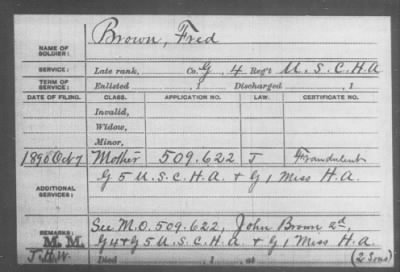 Brown, Fred
NAME OF SOLDIER:
SERVICE: Late rank, Co. G, 4 Reg't U.S.C.H.A.
TERM OF SERVICE: Enlisted , 1 Discharged , 1
DATE OF FILING. CLASS. APPLICATION NO. LAW. CERTIFICATE NO.
Invalid,
Widow,
Minor,
Mother 509.622 J Fraudulent
ADDITIONAL SERVICES: G 5 U.S.C.H.A. + G 1 Miss H.A.
REMARKS: See M.O. 509.622, John Brown 2d,
M. M. G 4 + G 5 U.S.C.H.A. + G 1 Miss H.A.
J.H.W. Died , 1 , at (2 Sons)